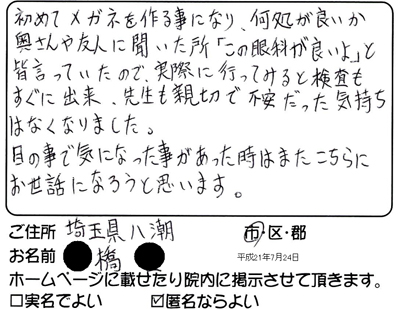 初めてメガネを作る事になり、何処が良いか
奥さんや友人に聞いた所「この眼科が良いよ」と
皆言っていたので、実際に行ってみると検査も
すぐに出来、先生も親切で不安だった気持ち
はなくなりました。
目の事で気になった事があった時はまたこちらに
お世話になろうと思います。
ご住所 埼玉県八潮 市・区・郡
お名前 橋 平成21年7月24日
ホームページに載せたり院内に掲示させて頂きます。
□実名でよい ☑匿名ならよい